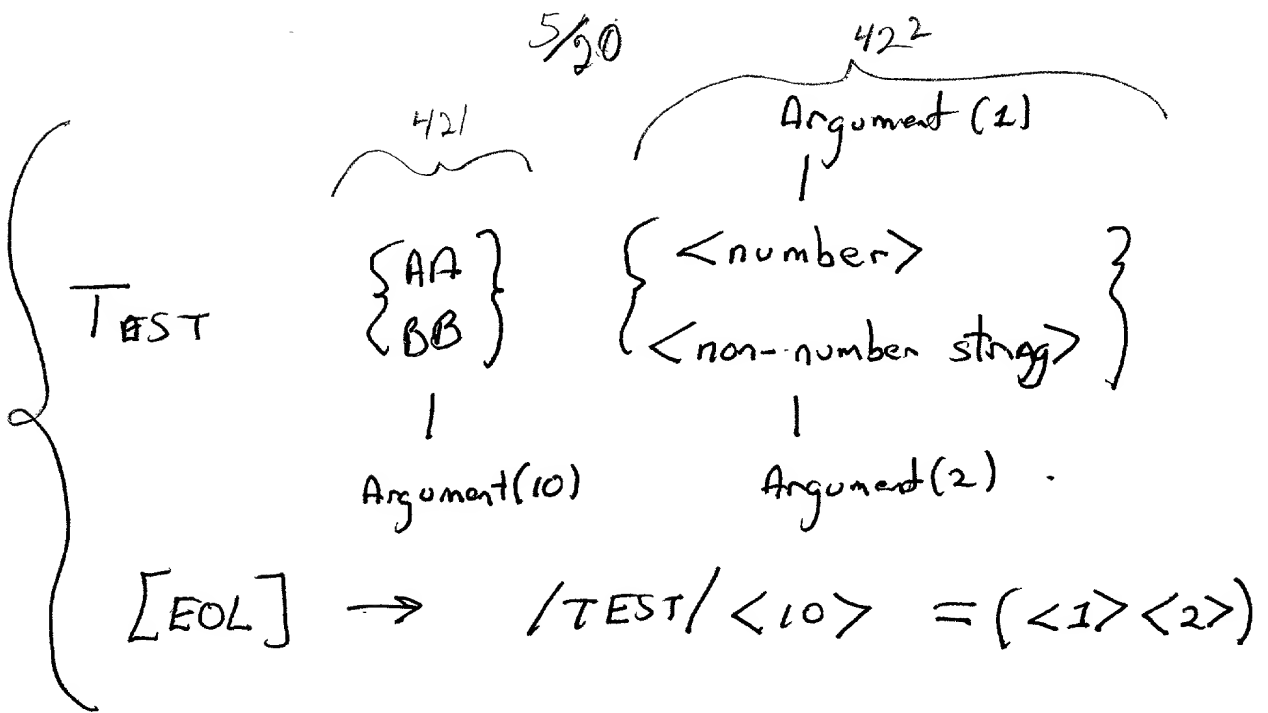 5/20
421 422
Argument (1)
{AA} { <number> }
TEST
{BB} <non-number string>
Argument(10) Argument(2)
[EOL] → /TEST/ <10> = (<1><2>)